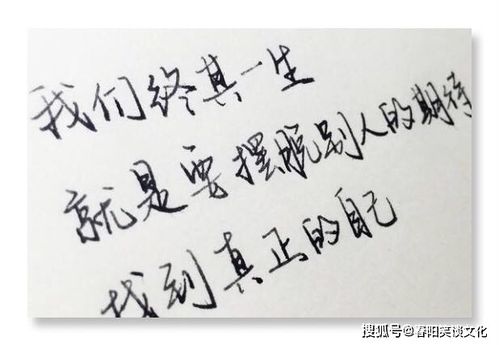 我们终其一生
就是要摆脱别人的期待
找到真正的自己
搜狐号@春阳笑谈文化